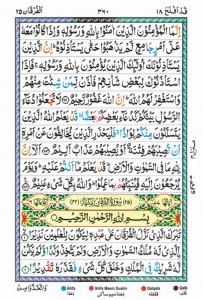 قَدْ اَفْلَحَ ١٨
٣٦٠
اَلْفُرْقَان ٢٥
اِنَّمَا الْمُؤْمِنُوْنَ الَّذِيْنَ اٰمَنُوْا بِاللّٰهِ وَرَسُوْلِهٖ وَاِذَا كَانُوْا مَعَهٗ
عَلٰۤى اَمْرٍ جَامِعٍ لَّمْ يَذْهَبُوْا حَتّٰى يَسْتَاْذِنُوْهُ ؕ اِنَّ الَّذِيْنَ
يَسْتَاْذِنُوْنَكَ اُولٰٓئِكَ الَّذِيْنَ يُؤْمِنُوْنَ بِاللّٰهِ وَرَسُوْلِهٖ ۚ فَاِذَا
اسْتَاْذَنُوْكَ لِبَعْضِ شَاْنِهِمْ فَاْذَنْ لِّمَنْ شِئْتَ مِنْهُمْ
وَاسْتَغْفِرْ لَهُمُ اللّٰهَ ؕ اِنَّ اللّٰهَ غَفُوْرٌ رَّحِيْمٌ لَا تَجْعَلُوْا دُعَآءَ
الرَّسُوْلِ بَيْنَكُمْ كَدُعَآءِ بَعْضِكُمْ بَعْضًا ؕ قَدْ يَعْلَمُ اللّٰهُ الَّذِيْنَ
يَتَسَلَّلُوْنَ مِنْكُمْ لِوَاذًا ۚ فَلْيَحْذَرِ الَّذِيْنَ يُخَالِفُوْنَ عَنْ اَمْرِهٖۤ
اَنْ تُصِيْبَهُمْ فِتْنَةٌ اَوْ يُصِيْبَهُمْ عَذَابٌ اَلِيْمٌ اَلَاۤ اِنَّ لِلّٰهِ
مَا فِى السَّمٰوٰتِ وَالْاَرْضِ ؕ قَدْ يَعْلَمُ مَاۤ اَنْتُمْ عَلَيْهِ ؕ وَيَوْمَ
يُرْجَعُوْنَ اِلَيْهِ فَيُنَبِّئُهُمْ بِمَا عَمِلُوْا ؕ وَاللّٰهُ بِكُلِّ شَىْءٍ عَلِيْمٌ
بِسْمِ اللّٰهِ الرَّحْمٰنِ الرَّحِيْمِ
تَبٰرَكَ الَّذِىْ نَزَّلَ الْفُرْقَانَ عَلٰى عَبْدِهٖ لِيَكُوْنَ لِلْعٰلَمِيْنَ نَذِيْرًا
الَّذِىْ لَهٗ مُلْكُ السَّمٰوٰتِ وَالْاَرْضِ وَلَمْ يَتَّخِذْ وَلَدًا وَّلَمْ يَكُنْ
لَّهٗ شَرِيْكٌ فِى الْمُلْكِ وَخَلَقَ كُلَّ شَىْءٍ فَقَدَّرَهٗ تَقْدِيْرًا